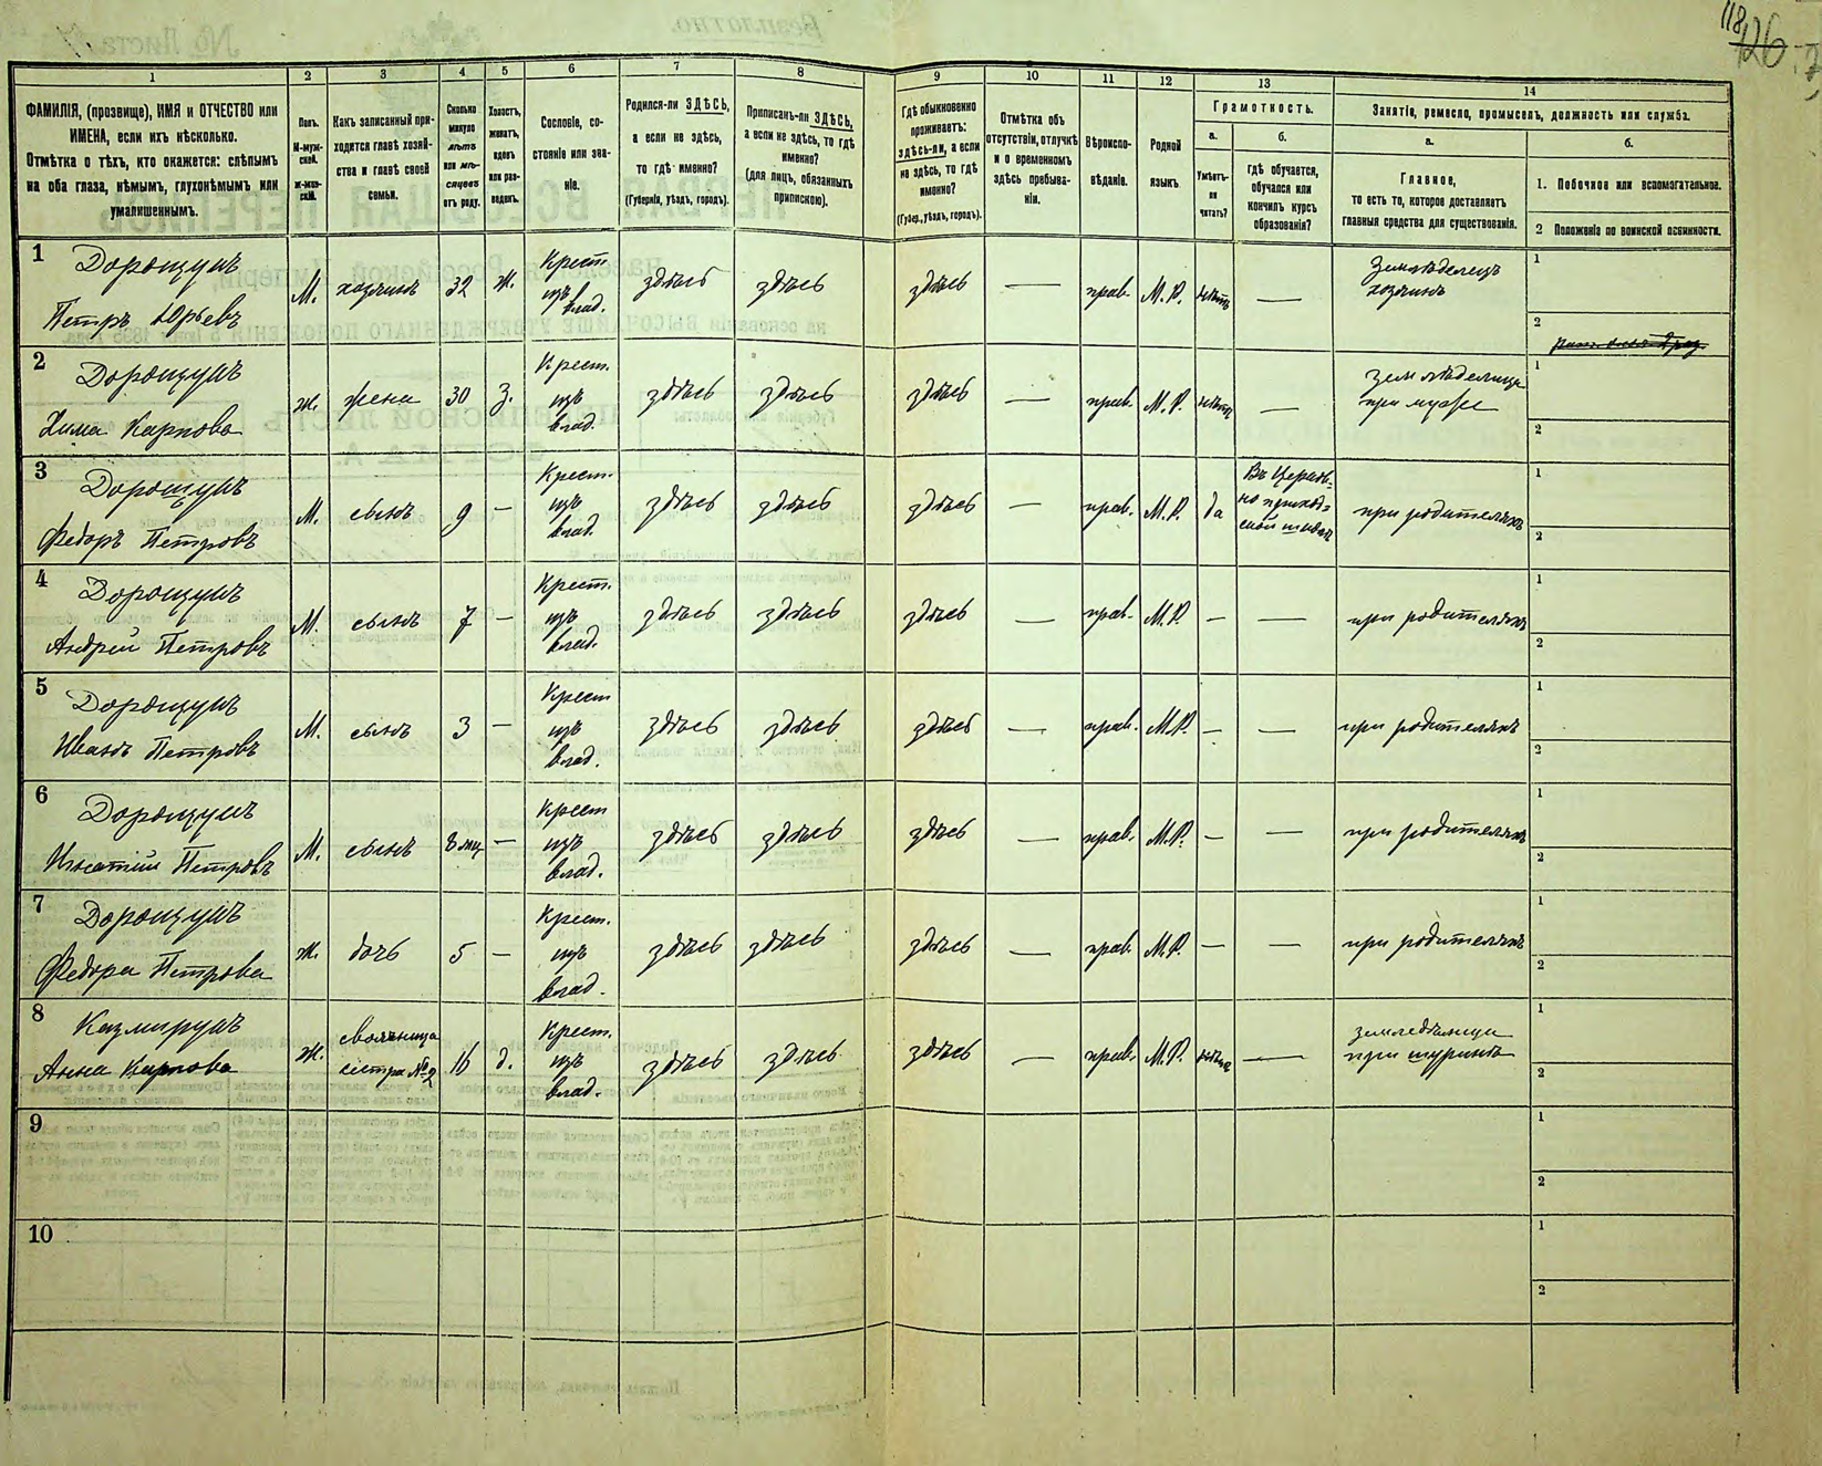 118
126
1
2
3
4
5
6
7
8
9
10
11
12
13
14
ФАМИЛІЯ, (прозвище), ИМЯ и ОТЧЕСТВО или
ИМЕНА, если ихъ нѣсколько.
Отмѣтка о тѣхъ, кто окажется: слѣпымъ
на оба глаза, нѣмымъ, глухонѣмымъ или
умалишеннымъ.
Полъ.
М-муж-
ской.
Ж-жен-
скій.
Какъ записанный при-
ходится главѣ хозяй-
ства и главѣ своей
семьи.
Сколько
минуло
лѣтъ
или мѣ-
сяцевъ
отъ роду.
Холостъ,
женатъ,
вдовъ
или раз-
веденъ.
Сословіе, со-
стояніе или зва-
ніе.
Родился-ли ЗДѢСЬ,
а если не здѣсь,
то гдѣ именно?
(Губернія, уѣздъ, городъ).
Приписанъ-ли ЗДѢСЬ,
а если не здѣсь, то гдѣ
именно?
(для лицъ, обязанныхъ
припискою).
Гдѣ обыкновенно
проживаетъ:
здѣсь-ли, а если
не здѣсь, то гдѣ
именно?
(Губер., уѣздъ, городъ).
Отмѣтка объ
отсутствіи, отлучкѣ
и о временномъ
здѣсь пребыва-
ніи.
Вѣроиспо-
вѣданіе.
Родной
языкъ.
Грамотность.
а.
б.
Умѣетъ-
ли
читать?
Гдѣ обучается,
обучался или
кончилъ курсъ
образованія?
Занятіе, ремесло, промыселъ, должность или служба.
а.
б.
Главное,
то есть то, которое доставляетъ
главныя средства для существованія.
1. Побочное или вспомогательное.
2 Положеніе по воинской повинности.
1
Дорощукъ
Петръ Юрьевъ
М.
хозяинъ
32
ж.
Крест.
изъ
влад.
здѣсь
здѣсь
здѣсь
—
прав.
М.Р.
нѣтъ
—
Земледѣлецъ
хозяинъ
1
2
2
Дорощукъ
Хима Карпова
ж.
жена
30
з.
Крест.
изъ
влад.
здѣсь
здѣсь
здѣсь
—
прав.
М.Р.
нѣтъ
—
земледѣлица
при мужѣ
1
2
3
Дорощукъ
Федоръ Петровъ
М.
сынъ
9
—
Крест.
изъ
влад.
здѣсь
здѣсь
здѣсь
—
прав.
М.Р.
да
Въ Церков-
но приход-
ской школѣ
при родителяхъ
1
2
4
Дорощукъ
Андрей Петровъ
М.
сынъ
7
—
Крест.
изъ
влад.
здѣсь
здѣсь
здѣсь
—
прав.
М.Р.
—
—
при родителяхъ
1
2
5
Дорощукъ
Иванъ Петровъ
М.
сынъ
3
—
Крест
изъ
влад.
здѣсь
здѣсь
здѣсь
—
прав.
М.Р.
—
—
при родителяхъ
1
2
6
Дорощукъ
Игнатій Петровъ
М.
сынъ
8 мц
—
Крест
изъ
влад.
здѣсь
здѣсь
здѣсь
—
прав.
М.Р.
—
—
при родителяхъ
1
2
7
Дорощукъ
Федора Петрова
ж.
дочь
5
—
Крест.
изъ
влад.
здѣсь
здѣсь
здѣсь
—
прав.
М.Р.
—
—
при родителяхъ
1
2
8
Казмирукъ
Анна Карпова
ж.
своячница
сестра №2
16
д.
Крест.
изъ
влад.
здѣсь
здѣсь
здѣсь
—
прав.
М.Р.
нѣтъ
—
земледѣлица
при шуринѣ
1
2
9
1
2
10
1
2